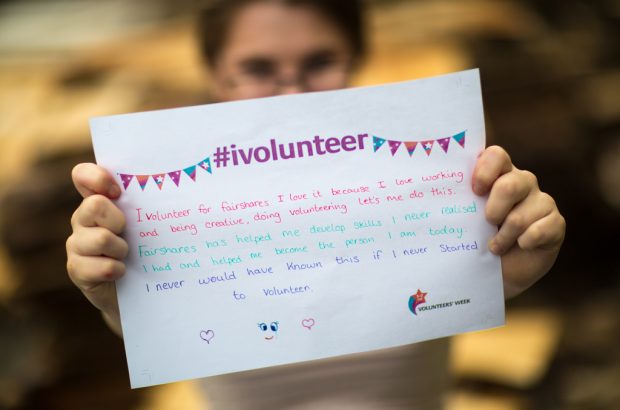 #ivolunteer
I volunteer for fairshares I love it because I love working
and being creative, doing volunteering let's me do this.
Fairshares has helped me develop skills I never realised
I had and helped me become the person I am today.
I never would have known this if I never started
to volunteer.
VOLUNTEERS' WEEK